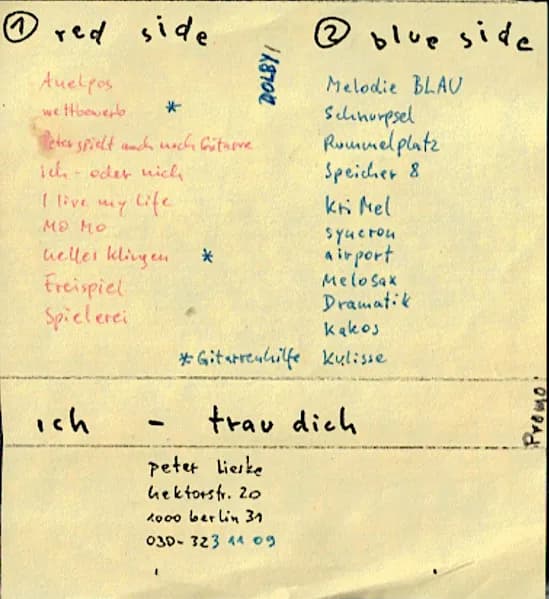 ① red side
Auelpos
wettbewerb *
Peter spielt auch noch Gitarre
ich - oder mich
I live my life
MO MO
helles klingen *
Freispiel
Spielerei
* Gitarrenhilfe
DOLBY!
② blue side
Melodie BLAU
Schnurpsel
Rummelplatz
Speicher 8
Kri Mel
syncron
airport
Melosax
Dramatik
Kakos
Kulisse
ich - trau dich
Promo
peter lieske
hektorstr. 20
1000 berlin 31
030-323 11 09